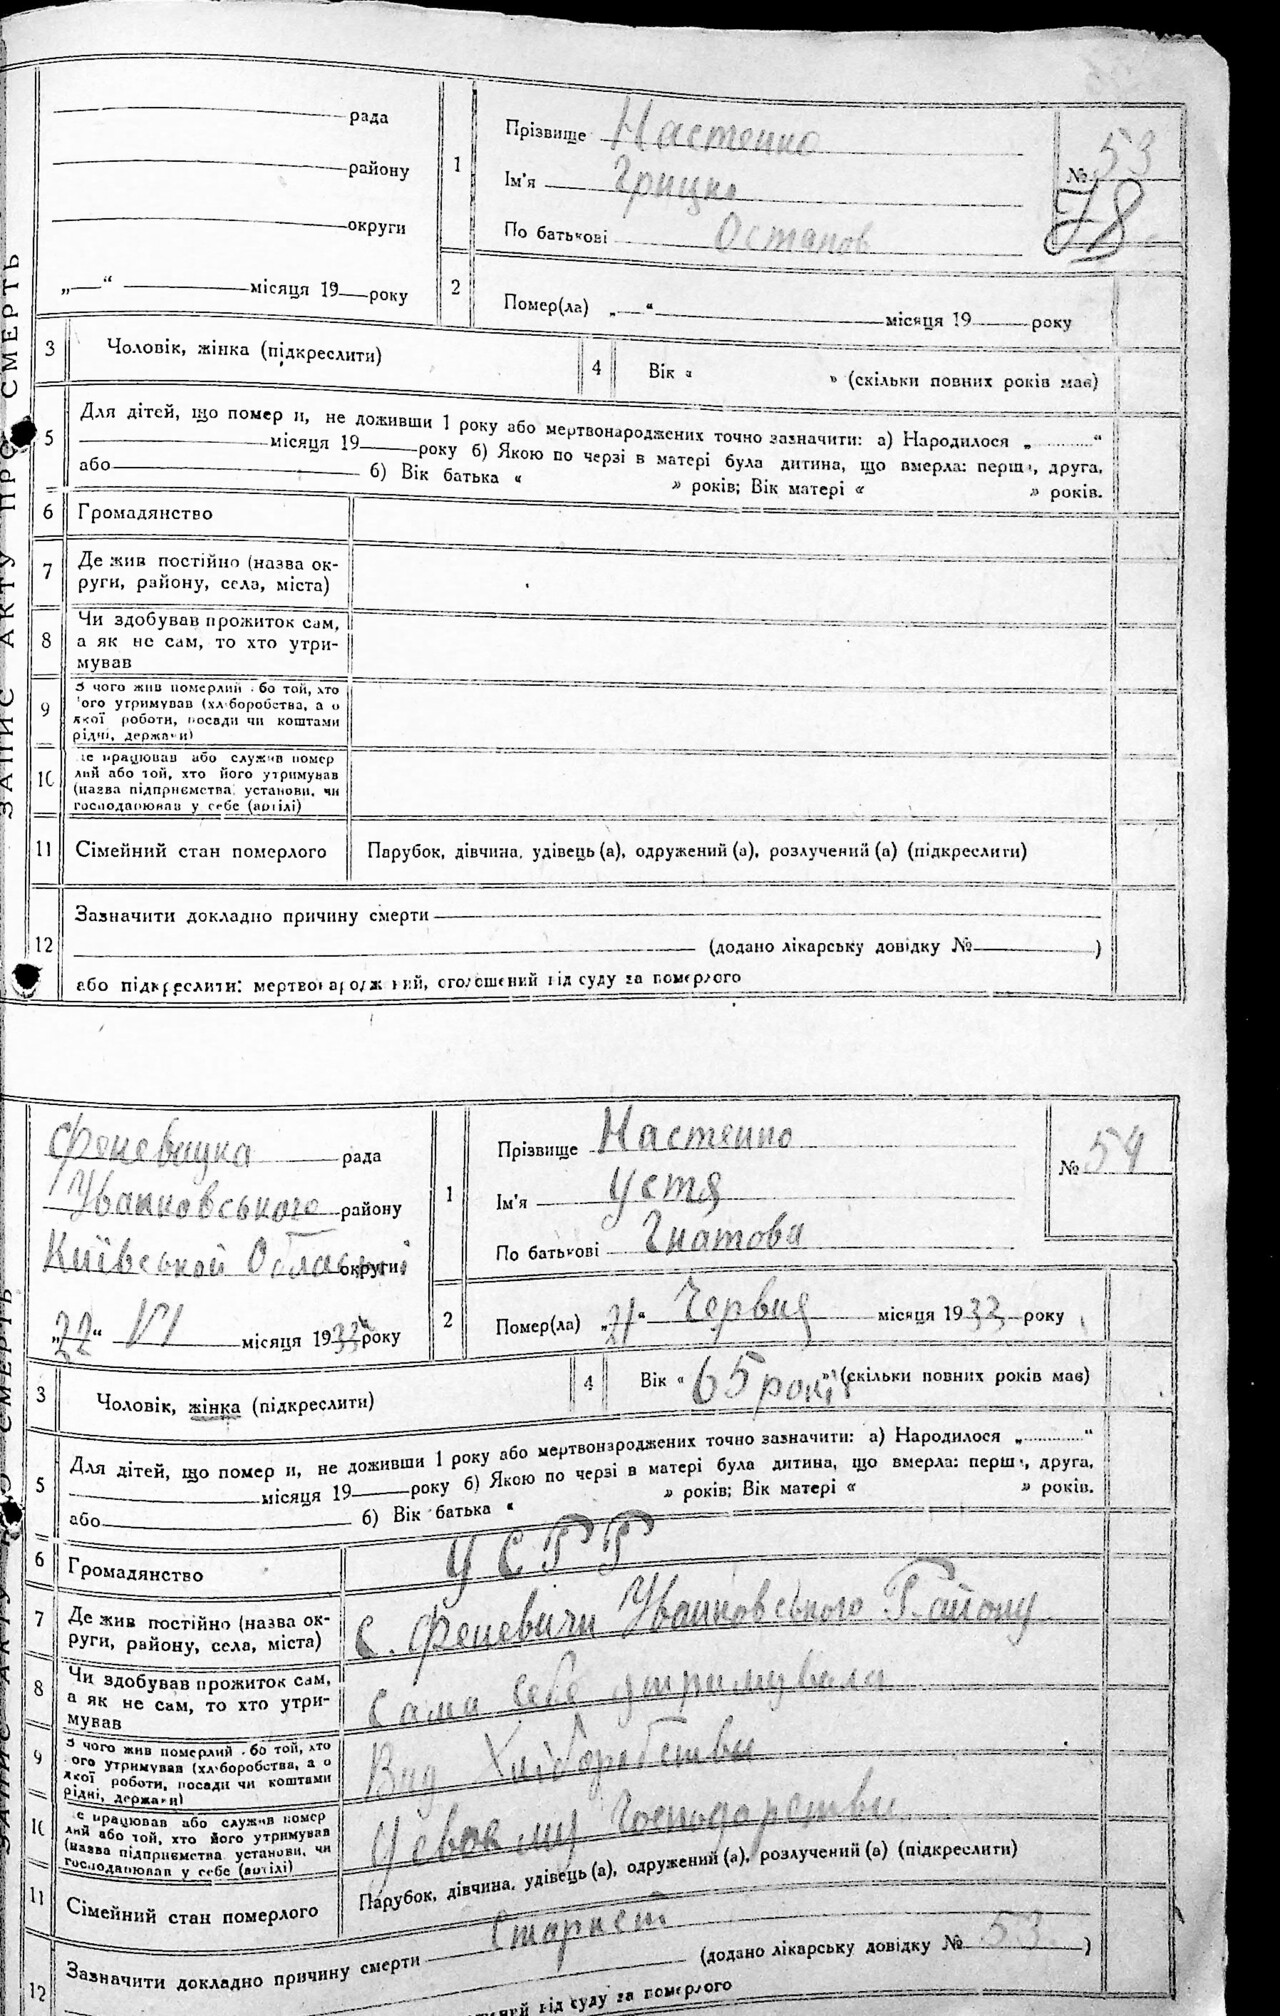 ЗАПИС АКТУ ПРО СМЕРТЬ
рада
району
округи
„ “ місяця 19 року
1
Прізвище Настенко
Ім'я Грицко
По батькові Остапов
№ 53
78
2
Помер(ла) „ “ місяця 19 року
3
Чоловік, жінка (підкреслити)
4
Вік « » (скільки повних років має)
5
Для дітей, що помер и, не доживши 1 року або мертвонароджених точно зазначити: а) Народилося „ “
місяця 19 року б) Якою по черзі в матері була дитина, що вмерла: перш, друга,
або б) Вік батька « » років; Вік матері « » років.
6
Громадянство
7
Де жив постійно (назва ок-
руги, району, села, міста)
8
Чи здобував прожиток сам,
а як не сам, то хто утри-
мував
9
З чого жив померлий бо той, хто
ого утримував (хл боробства, а о
якої роботи, посади чи коштами
рідні, держави)
10
е працював або служив помер
лий або той, хто його утримував
(назва підприємства, установи, чи
господарював у себе (артілі)
11
Сімейний стан померлого
Парубок, дівчина, удівець (а), одружений (а), розлучений (а) (підкреслити)
12
Зазначити докладно причину смерти
(додано лікарську довідку № )
або підкреслити: мертвонароджений, оголошений від суду за померлого
Феневицка рада
Іванковського району
Київської Області округи
„22“ VI місяця 1933 року
1
Прізвище Настенко
Ім'я Устя
По батькові Гнатова
№ 54
2
Помер(ла) „21“ Червня місяця 1933 року
3
Чоловік, жінка (підкреслити)
4
Вік « 65 років » (скільки повних років має)
5
Для дітей, що помер и, не доживши 1 року або мертвонароджених точно зазначити: а) Народилося „ “
місяця 19 року б) Якою по черзі в матері була дитина, що вмерла: перш, друга,
або б) Вік батька « » років; Вік матері « » років.
6
Громадянство
УСРР
7
Де жив постійно (назва ок-
руги, району, села, міста)
С. Феневичи Іванковського Району
8
Чи здобував прожиток сам,
а як не сам, то хто утри-
мував
Сама себе утримувала
9
З чого жив померлий бо той, хто
ого утримував (хл боробства, а о
якої роботи, посади чи коштами
рідні, держави)
Вид Хліборобстви
10
е працював або служив помер
лий або той, хто його утримував
(назва підприємства, установи, чи
господарював у себе (артілі)
У своему Господарстви
11
Сімейний стан померлого
Парубок, дівчина, удівець (а), одружений (а), розлучений (а) (підкреслити)
12
Зазначити докладно причину смерти Старист
(додано лікарську довідку № 53 )
від суду за померлого